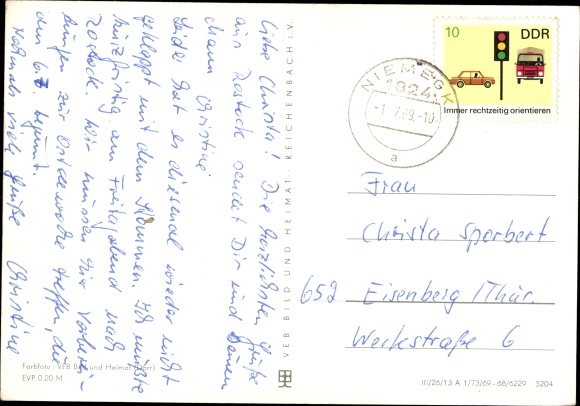 Liebe Christa! Die herzlichsten Grüße
aus Rostock sendet Dir und Deinem
Mann Christine
Leider hat es diesmal wieder nicht
geklappt mit dem Kommen. Ich mußte
kurzfristig am Freitagabend nach
Rostock. Wir müssen hier Vorberei-
tungen zur Ostseewoche treffen, die
am 6.7. beginnt.
Nochmals viele Grüße Christine
VEB BILD UND HEIMAT · REICHENBACH I. V.
10 DDR
Immer rechtzeitig orientieren
NIEMEGK
1824
-1.7.69.-10
a
Frau
Christa Sperbert
652 Eisenberg/Thür.
Werkstraße 6
Farbfoto: VEB Bild und Heimat (Darr)
EVP 0.20 M
III/26/13 A 1/73/69 - 68/6229 5204